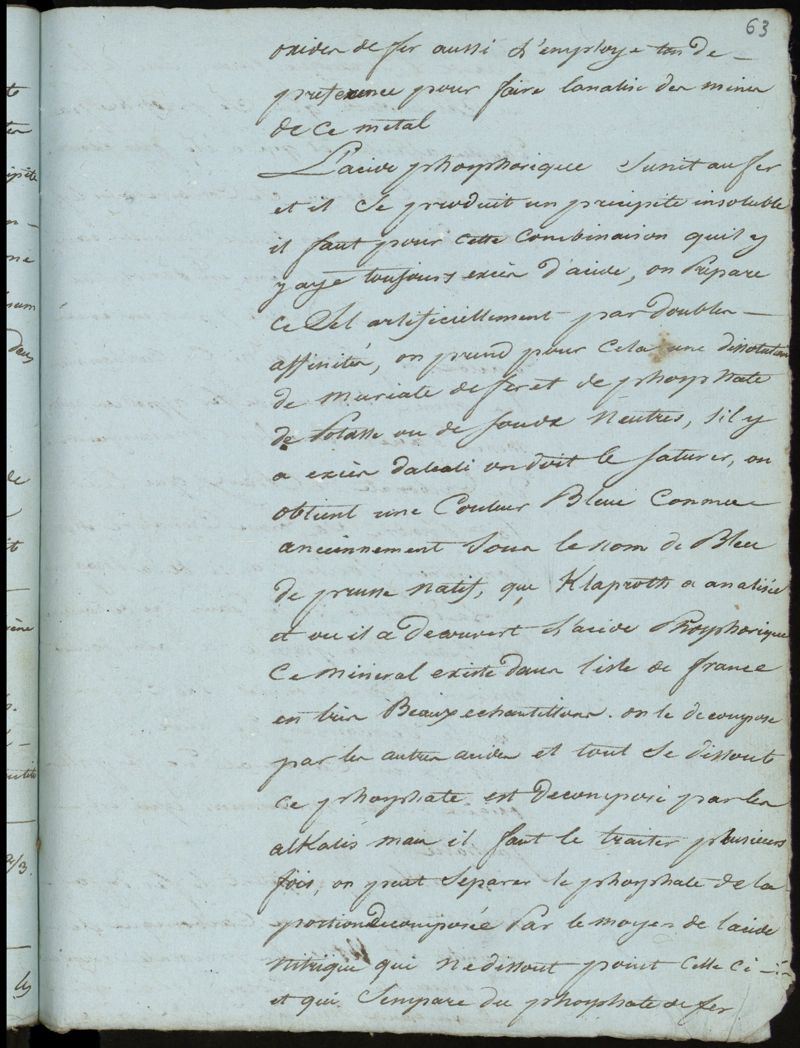 63
oxides de fer aussi l'employe ton de –
preference pour faire lanalise des mines
de ce metal
L'acide phosphorique s'unit au fer
et il se produit un precipité insoluble
il faut pour cette combinaison qu'il y
y aye toujours excès d'acide, on prepare
ce Sel artificiellement par doubles –
affinités, on prend pour cela une dissolution
de muriate de fer et de phosphate
de Potasse ou de soude neutres, s'il y
a excès dalcali on doit le saturer, on
obtient une Couleur Bleue Connue
anciennement sous le nom de Bleu
de prusse natif, que Klaproth a analisée
et ou il a decouvert l'acide Phosphorique
Ce mineral existe dans l'isle de france
en très Beaux echantillons. on le decompose
par les autres acides et tout se dissout
ce phosphate est decomposé par les
alkalis mais il faut le traiter plusieurs
fois, on peut séparer le phosphate de la
portion decomposée par le moyen de lacide
nitrique qui ne dissout point celle ci –
et qui s'empare du phosphate de fer